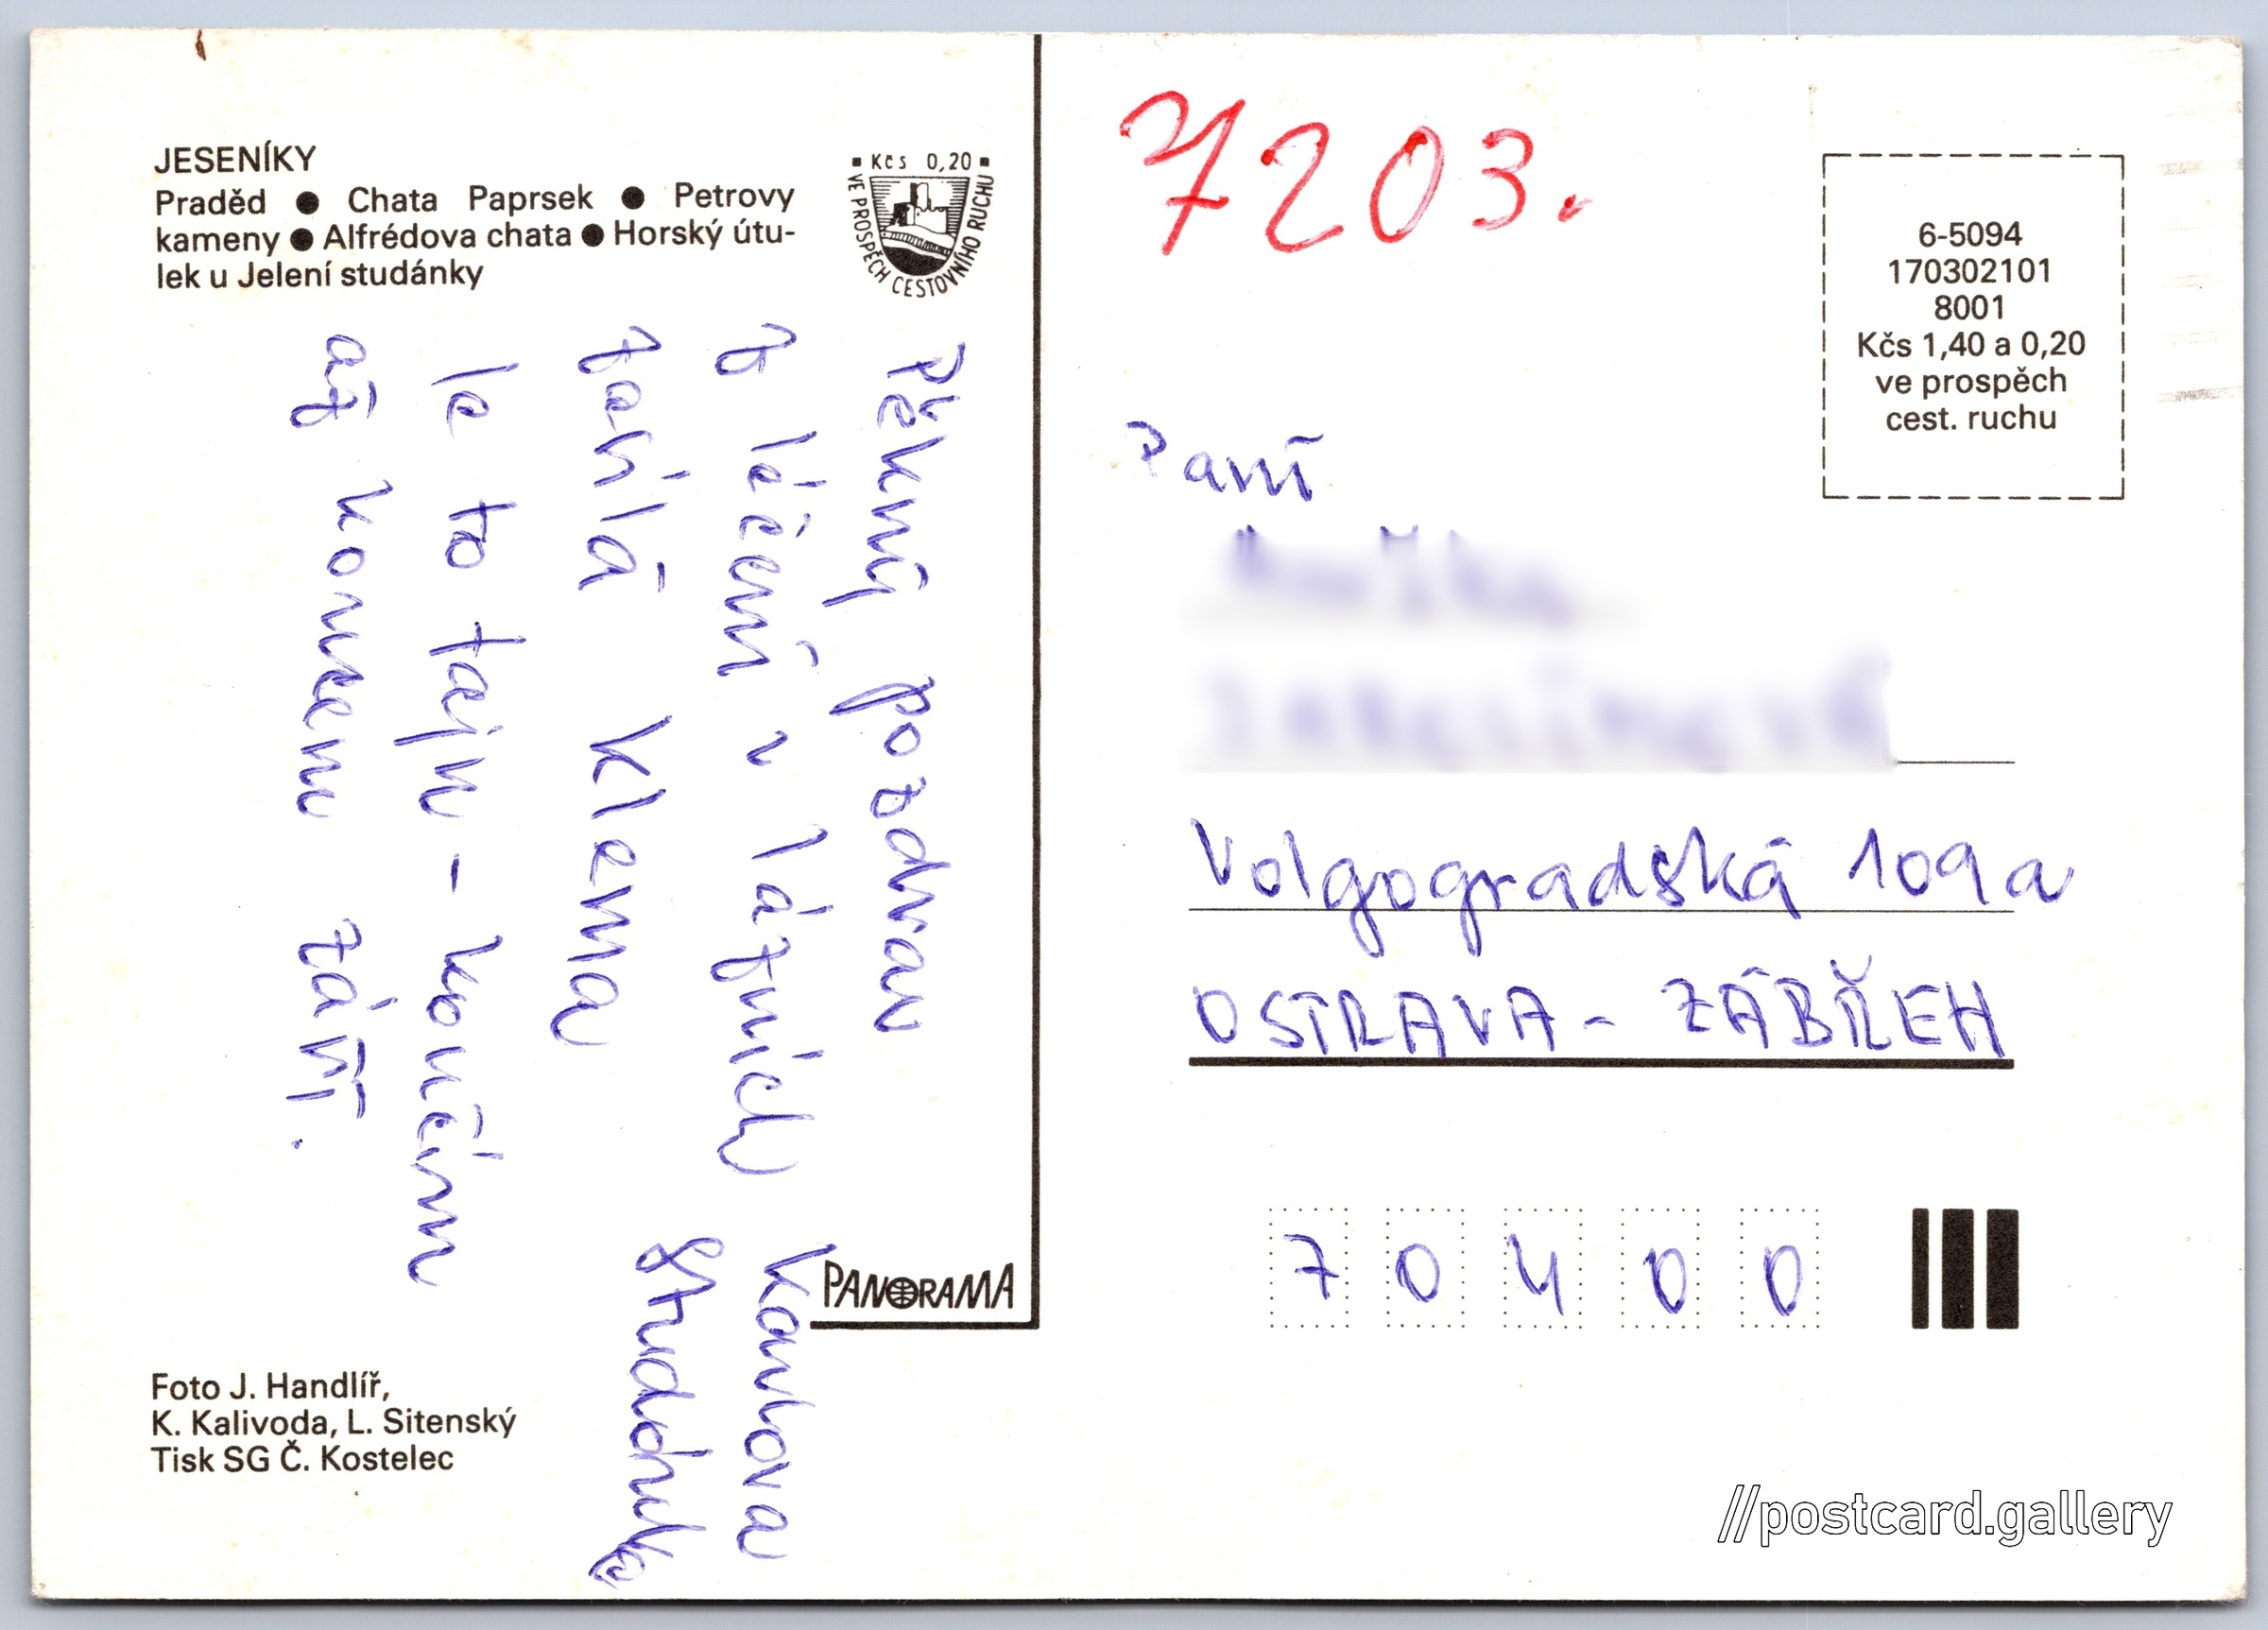 JESENÍKY
Praděd ● Chata Paprsek ● Petrovy
kameny ● Alfrédova chata ● Horský útu-
lek u Jelení studánky
▪ Kčs 0,20 ▪
VE PROSPĚCH CESTOVNÍHO RUCHU
Pěkný pozdrav
z léčení v lázních
zasílá Klema
Je to fajn - končím
až koncem září.
PANORAMA
Foto J. Handlíř,
K. Kalivoda, L. Sitenský
Tisk SG Č. Kostelec
7203.
6-5094
170302101
8001
Kčs 1,40 a 0,20
ve prospěch
cest. ruchu
Paní
Volgogradská 109a
OSTRAVA - ZÁBŘEH
7 0 4 0 0
//postcard.gallery